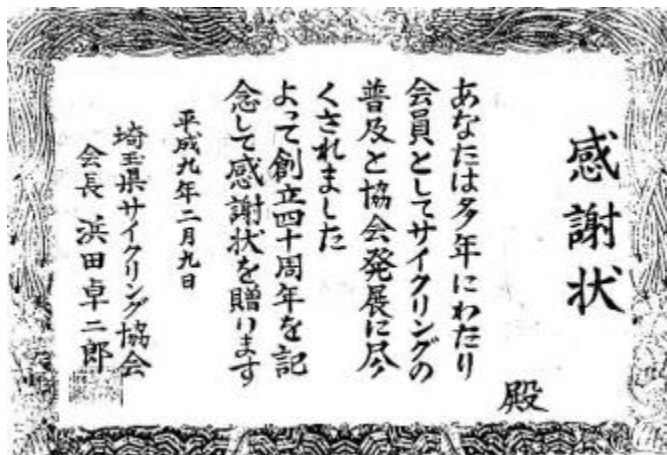 感謝状
殿
あなたは多年にわたり
会員としてサイクリングの
普及と協会発展に尽
くされました
よって創立四十周年を記
念して感謝状を贈ります
平成九年二月九日
埼玉県サイクリング協会
会長 浜田卓二郎